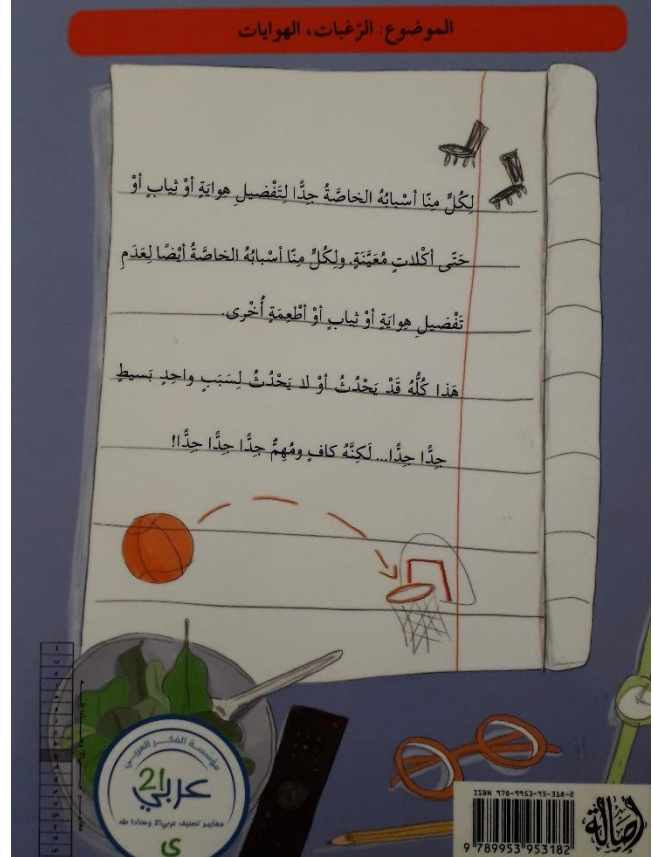 الموضوع: الرّغبات، الهوايات
لِكُلٍّ مِنّا أسْبابُهُ الخاصَّةُ جِدًّا لِتَفْضيلِ هِوايَةٍ أوْ ثِيابٍ أوْ
حَتّى أكْلاتٍ مُعَيَّنَةٍ، ولِكُلٍّ مِنّا أسْبابُهُ الخاصَّةُ أيْضًا لِعَدَمِ
تَفْضيلِ هِوايَةٍ أوْ ثِيابٍ أوْ أطْعِمَةٍ أُخْرى.
هَذا كُلُّهُ قَدْ يَحْدُثُ أوْ لا يَحْدُثُ لِسَبَبٍ واحِدٍ بَسيطٍ
جِدًّا جِدًّا... لَكِنَّهُ كافٍ ومُهِمٌّ جِدًّا جِدًّا جِدًّا!
مؤسسة الفكر العربي
عربي21
معايير تصنيف عربي21 وهنادا طه
ي
ISBN 978-9953-95-318-2
9 789953 953182
أصالة